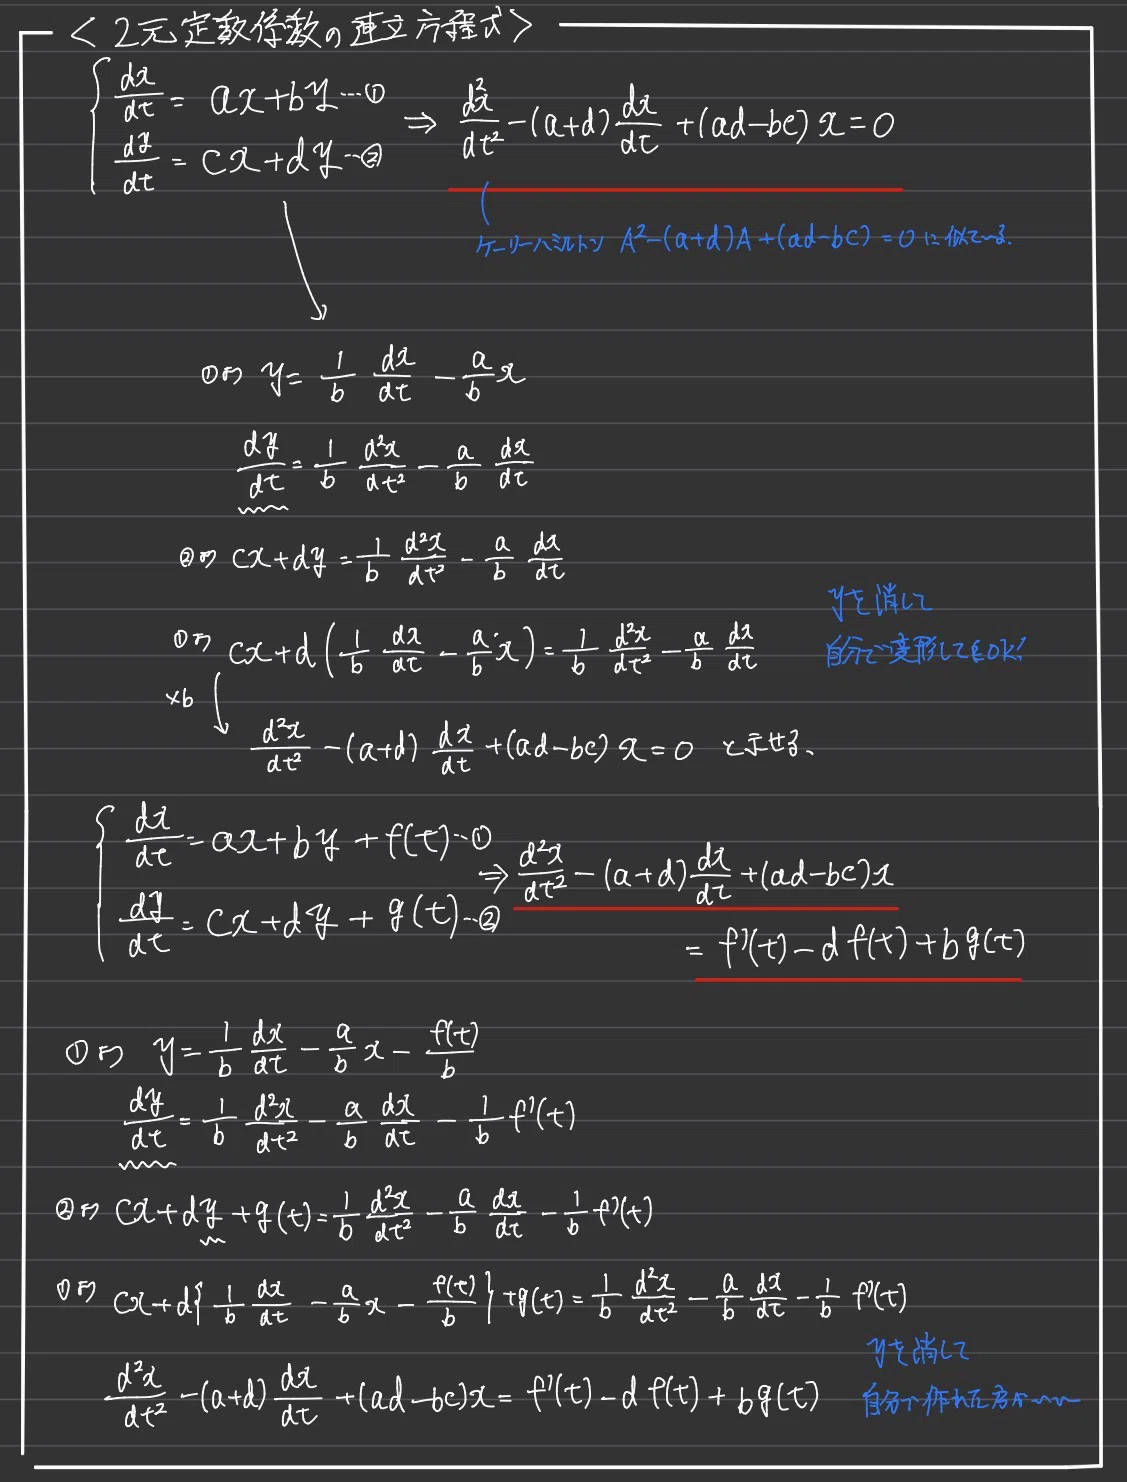 <2元定数係数の連立方程式>
dx/dt = ax+by…①
dy/dt = cx+dy…②
⇒ d²x/dt² −(a+d) dx/dt +(ad−bc)x=0
ケーリーハミルトン A²−(a+d)A+(ad−bc)=0に似ている.
①より y= 1/b dx/dt − a/b x
dy/dt = 1/b d²x/dt² − a/b dx/dt
②より cx+dy = 1/b d²x/dt² − a/b dx/dt
yを消して
①より cx+d(1/b dx/dt − a/b x) = 1/b d²x/dt² − a/b dx/dt
自分で変形してもOK!
×b
d²x/dt² −(a+d) dx/dt +(ad−bc)x=0 と示せる、
dx/dt = ax+by+f(t)…①
dy/dt = cx+dy+g(t)…②
⇒ d²x/dt² −(a+d) dx/dt +(ad−bc)x
= f'(t)−d f(t)+b g(t)
①より y= 1/b dx/dt − a/b x − f(t)/b
dy/dt = 1/b d²x/dt² − a/b dx/dt − 1/b f'(t)
②より cx+dy+g(t) = 1/b d²x/dt² − a/b dx/dt − 1/b f'(t)
①より cx+d{1/b dx/dt − a/b x − f(t)/b}+g(t) = 1/b d²x/dt² − a/b dx/dt − 1/b f'(t)
yを消して
d²x/dt² −(a+d) dx/dt +(ad−bc)x = f'(t)−d f(t)+b g(t)
自分で作れた方が